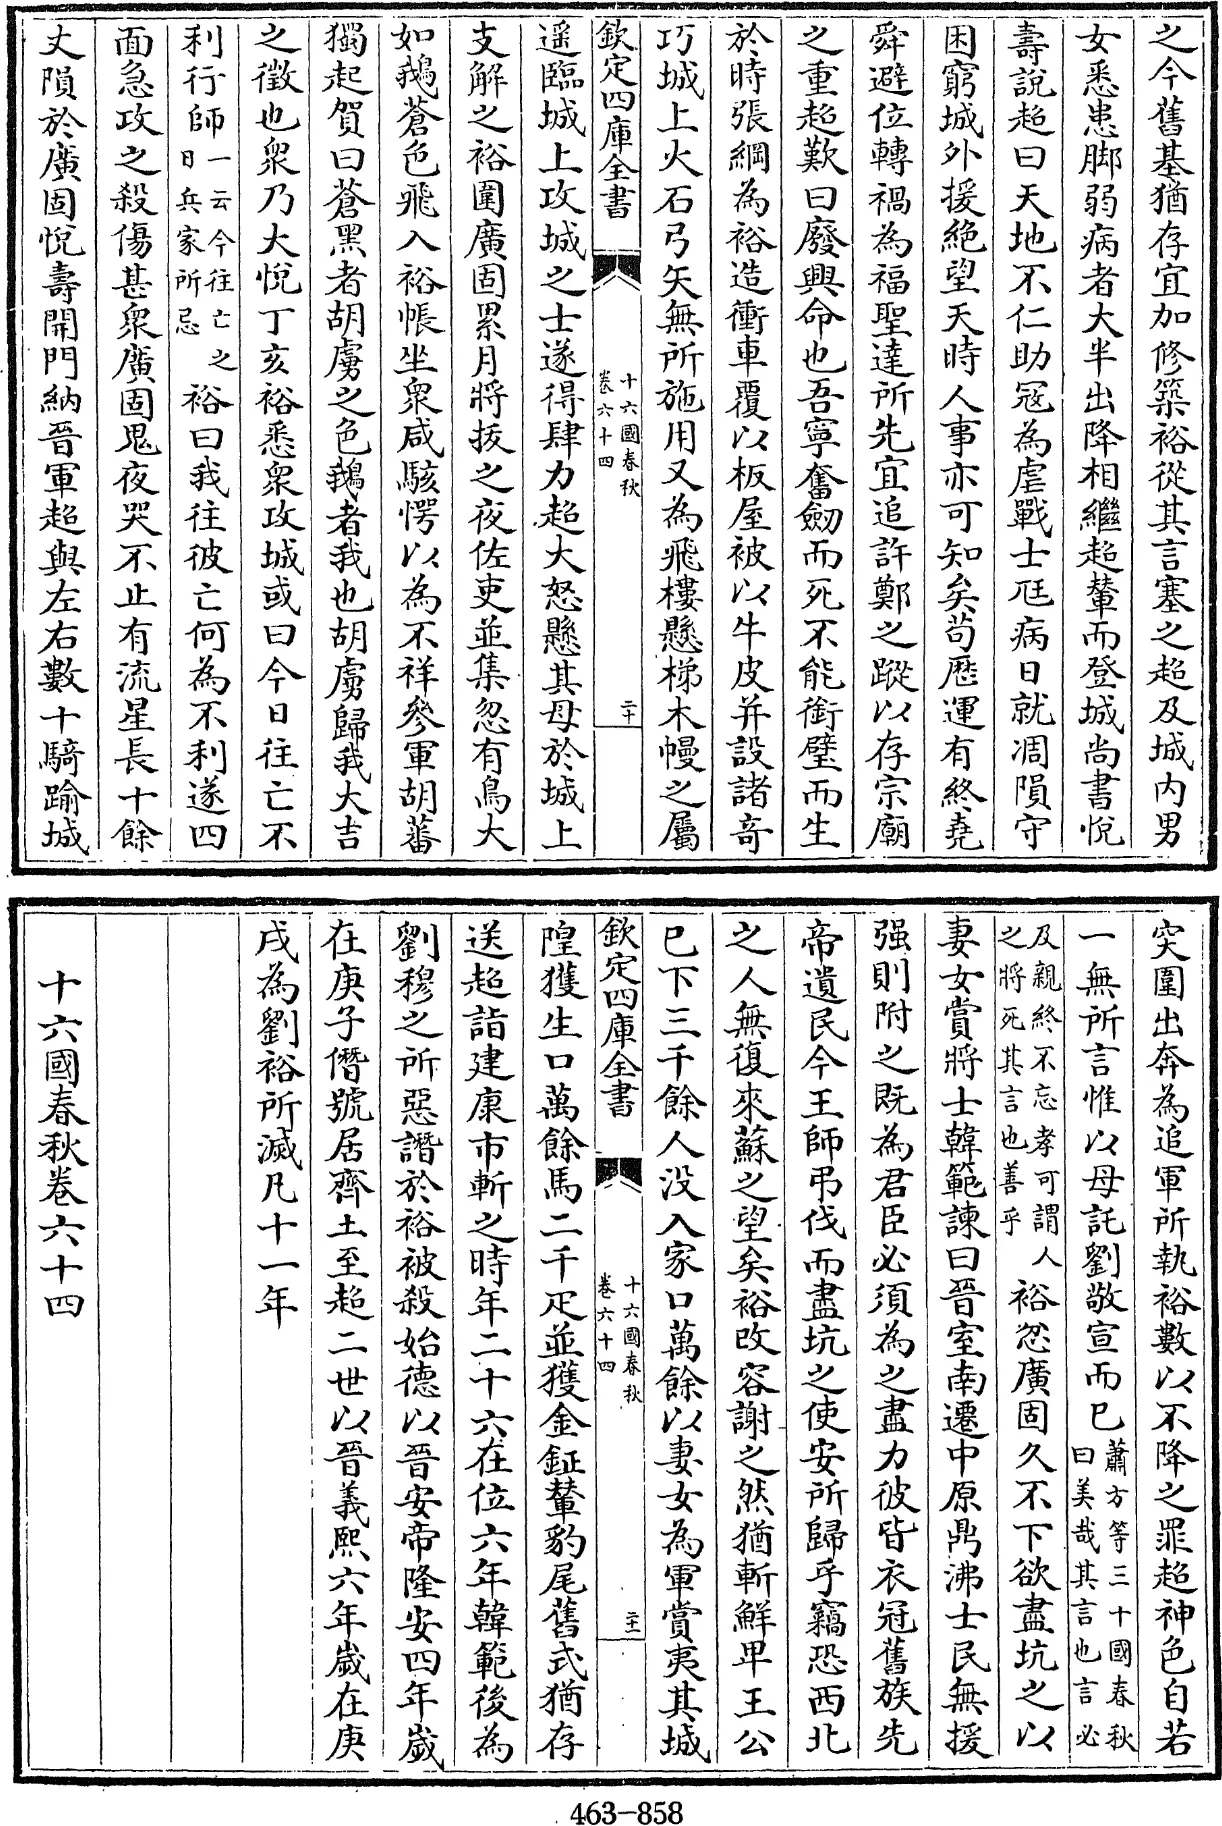 之今舊基猶存宜加修築裕從其言塞之超及城内男
女悉患脚弱病者大半出降相繼超輦而登城尚書悅
壽說超曰天地不仁助寇為虐戰士尫病日就凋隕守
困窮城外援絶望天時人事亦可知矣苟歴運有終堯
舜避位轉禍為福聖達所先宜追許鄭之蹤以存宗廟
之重超歎曰廢興命也吾寧奮劒而死不能銜璧而生
於時張綱為裕造衝車覆以板屋被以牛皮并設諸奇
巧城上火石弓矢無所施用又為飛樓懸梯木幔之屬
欽定四庫全書
十六國春秋
卷六十四
二十
遥臨城上攻城之士遂得肆力超大怒懸其母於城上
支解之裕圍廣固累月將抜之夜佐吏並集忽有鳥大
如鵝蒼色飛入裕帳坐衆咸駭愕以為不祥參軍胡蕃
獨起賀曰蒼黑者胡虜之色鵝者我也胡虜歸我大吉
之徵也衆乃大悅丁亥裕悉衆攻城或曰今日往亡不
利行師一云今往亡之日兵家所忌裕曰我往彼亡何為不利遂四
面急攻之殺傷甚衆廣固鬼夜哭不止有流星長十餘
丈隕於廣固悅壽開門納晉軍超與左右數十騎踰城
突圍出奔為追軍所執裕數以不降之罪超神色自若
一無所言惟以母託劉敬宣而已蕭方等三十國春秋曰美哉其言也言必
及親終不忘孝可謂人之將死其言也善乎裕忿廣固久不下欲盡坑之以
妻女賞將士韓範諫曰晉室南遷中原鼎沸士民無援
强則附之既為君臣必須為之盡力彼皆衣冠舊族先
帝遺民今王師弔伐而盡坑之使安所歸乎竊恐西北
之人無復來蘇之望矣裕改容謝之然猶斬鮮卑王公
已下三千餘人没入家口萬餘以妻女為軍賞夷其城
欽定四庫全書
十六國春秋
卷六十四
二十一
隍獲生口萬餘馬二千疋並獲金鉦輦豹尾舊式猶存
送超詣建康市斬之時年二十六在位六年韓範後為
劉穆之所惡譖於裕被殺始德以晉安帝隆安四年歲
在庚子僭號居齊土至超二世以晉義熙六年歲在庚
戌為劉裕所滅凡十一年
十六國春秋卷六十四
463-858